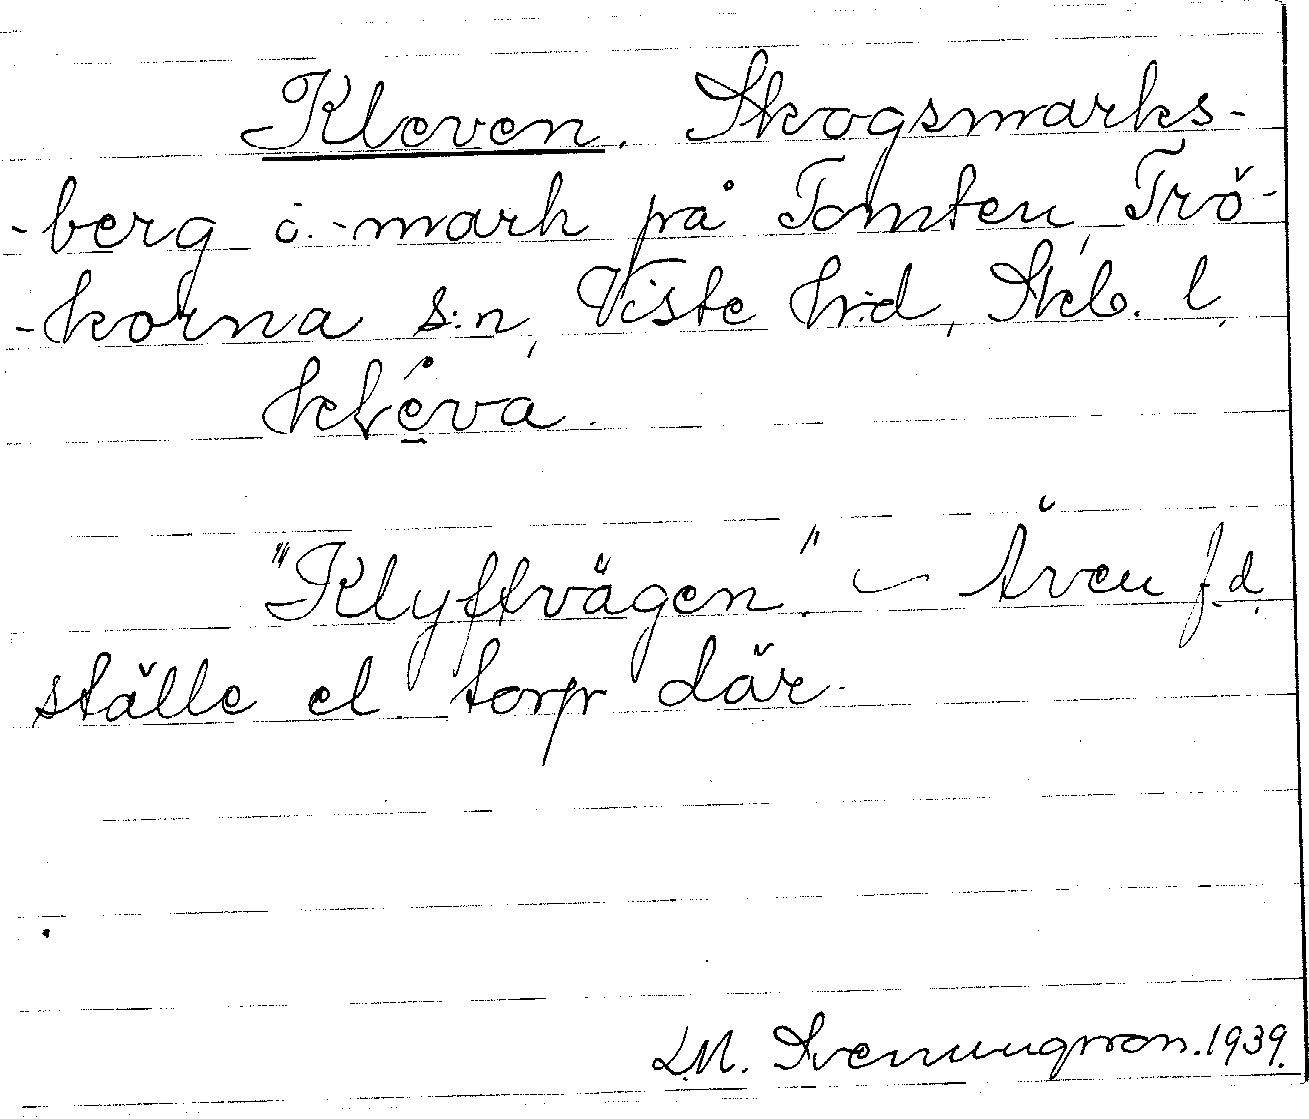 Kleven. Skogsmarks-
-berg o. -mark på Tomten, Trö-
-korna s:n, Viste h:d, Skb. l.
kléva.
"Klyftvägen." ~ Även f.d.
ställe el torp där.
L.M. Svenungsson. 1939.